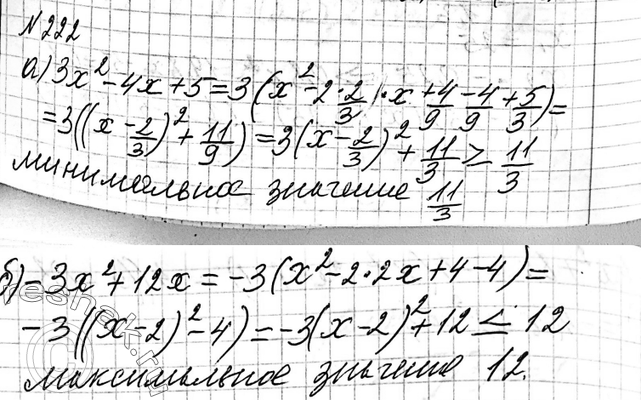 №222
а) 3x² - 4x + 5 = 3(x² - 2·2/3·x + 4/9 - 4/9 + 5/3) =
= 3((x - 2/3)² + 11/9) = 3(x - 2/3)² + 11/3 ≥ 11/3
минимальное значение 11/3
б) -3x² + 12x = -3(x² - 2·2x + 4 - 4) =
-3((x - 2)² - 4) = -3(x - 2)² + 12 ≤ 12
максимальное значение 12.